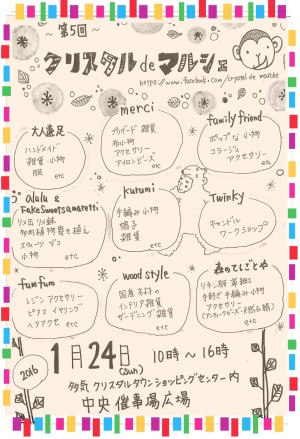 第5回
クリスタル de マルシェ
https://www.facebook.com/crystal de marche
大人遠足
ハンドメイド
雑貨 小物
服
etc
merci
ナチュラル 雑貨
布小物
アクセサリー
アイロンビーズ
etc
family friend
ポップな 小物
コラージュ
アクセサリー
etc
alulu &
Fake Sweets amaretti
リメ缶 リメ鉢
多肉植物寄せ植え
スウィーツ デコ
小物
etc
kurumi
手編み小物
帽子
雑貨
etc
Twinky
キャンドル
ワークショップ
fum fum
レジン アクセサリー
ピアス イヤリング
ヘアアクセ etc
wood style
国産 木材の
インテリア 雑貨
ガーデニング 雑貨
etc
森のてしごとや
リネン服
手紡ぎ 手編み小物
アクセサリー
(アンティークビーズ・天然石 他)
etc
2016
1月24日(sun) 10時～16時
多気 クリスタルタウンショッピングセンター内
中央催事場広場